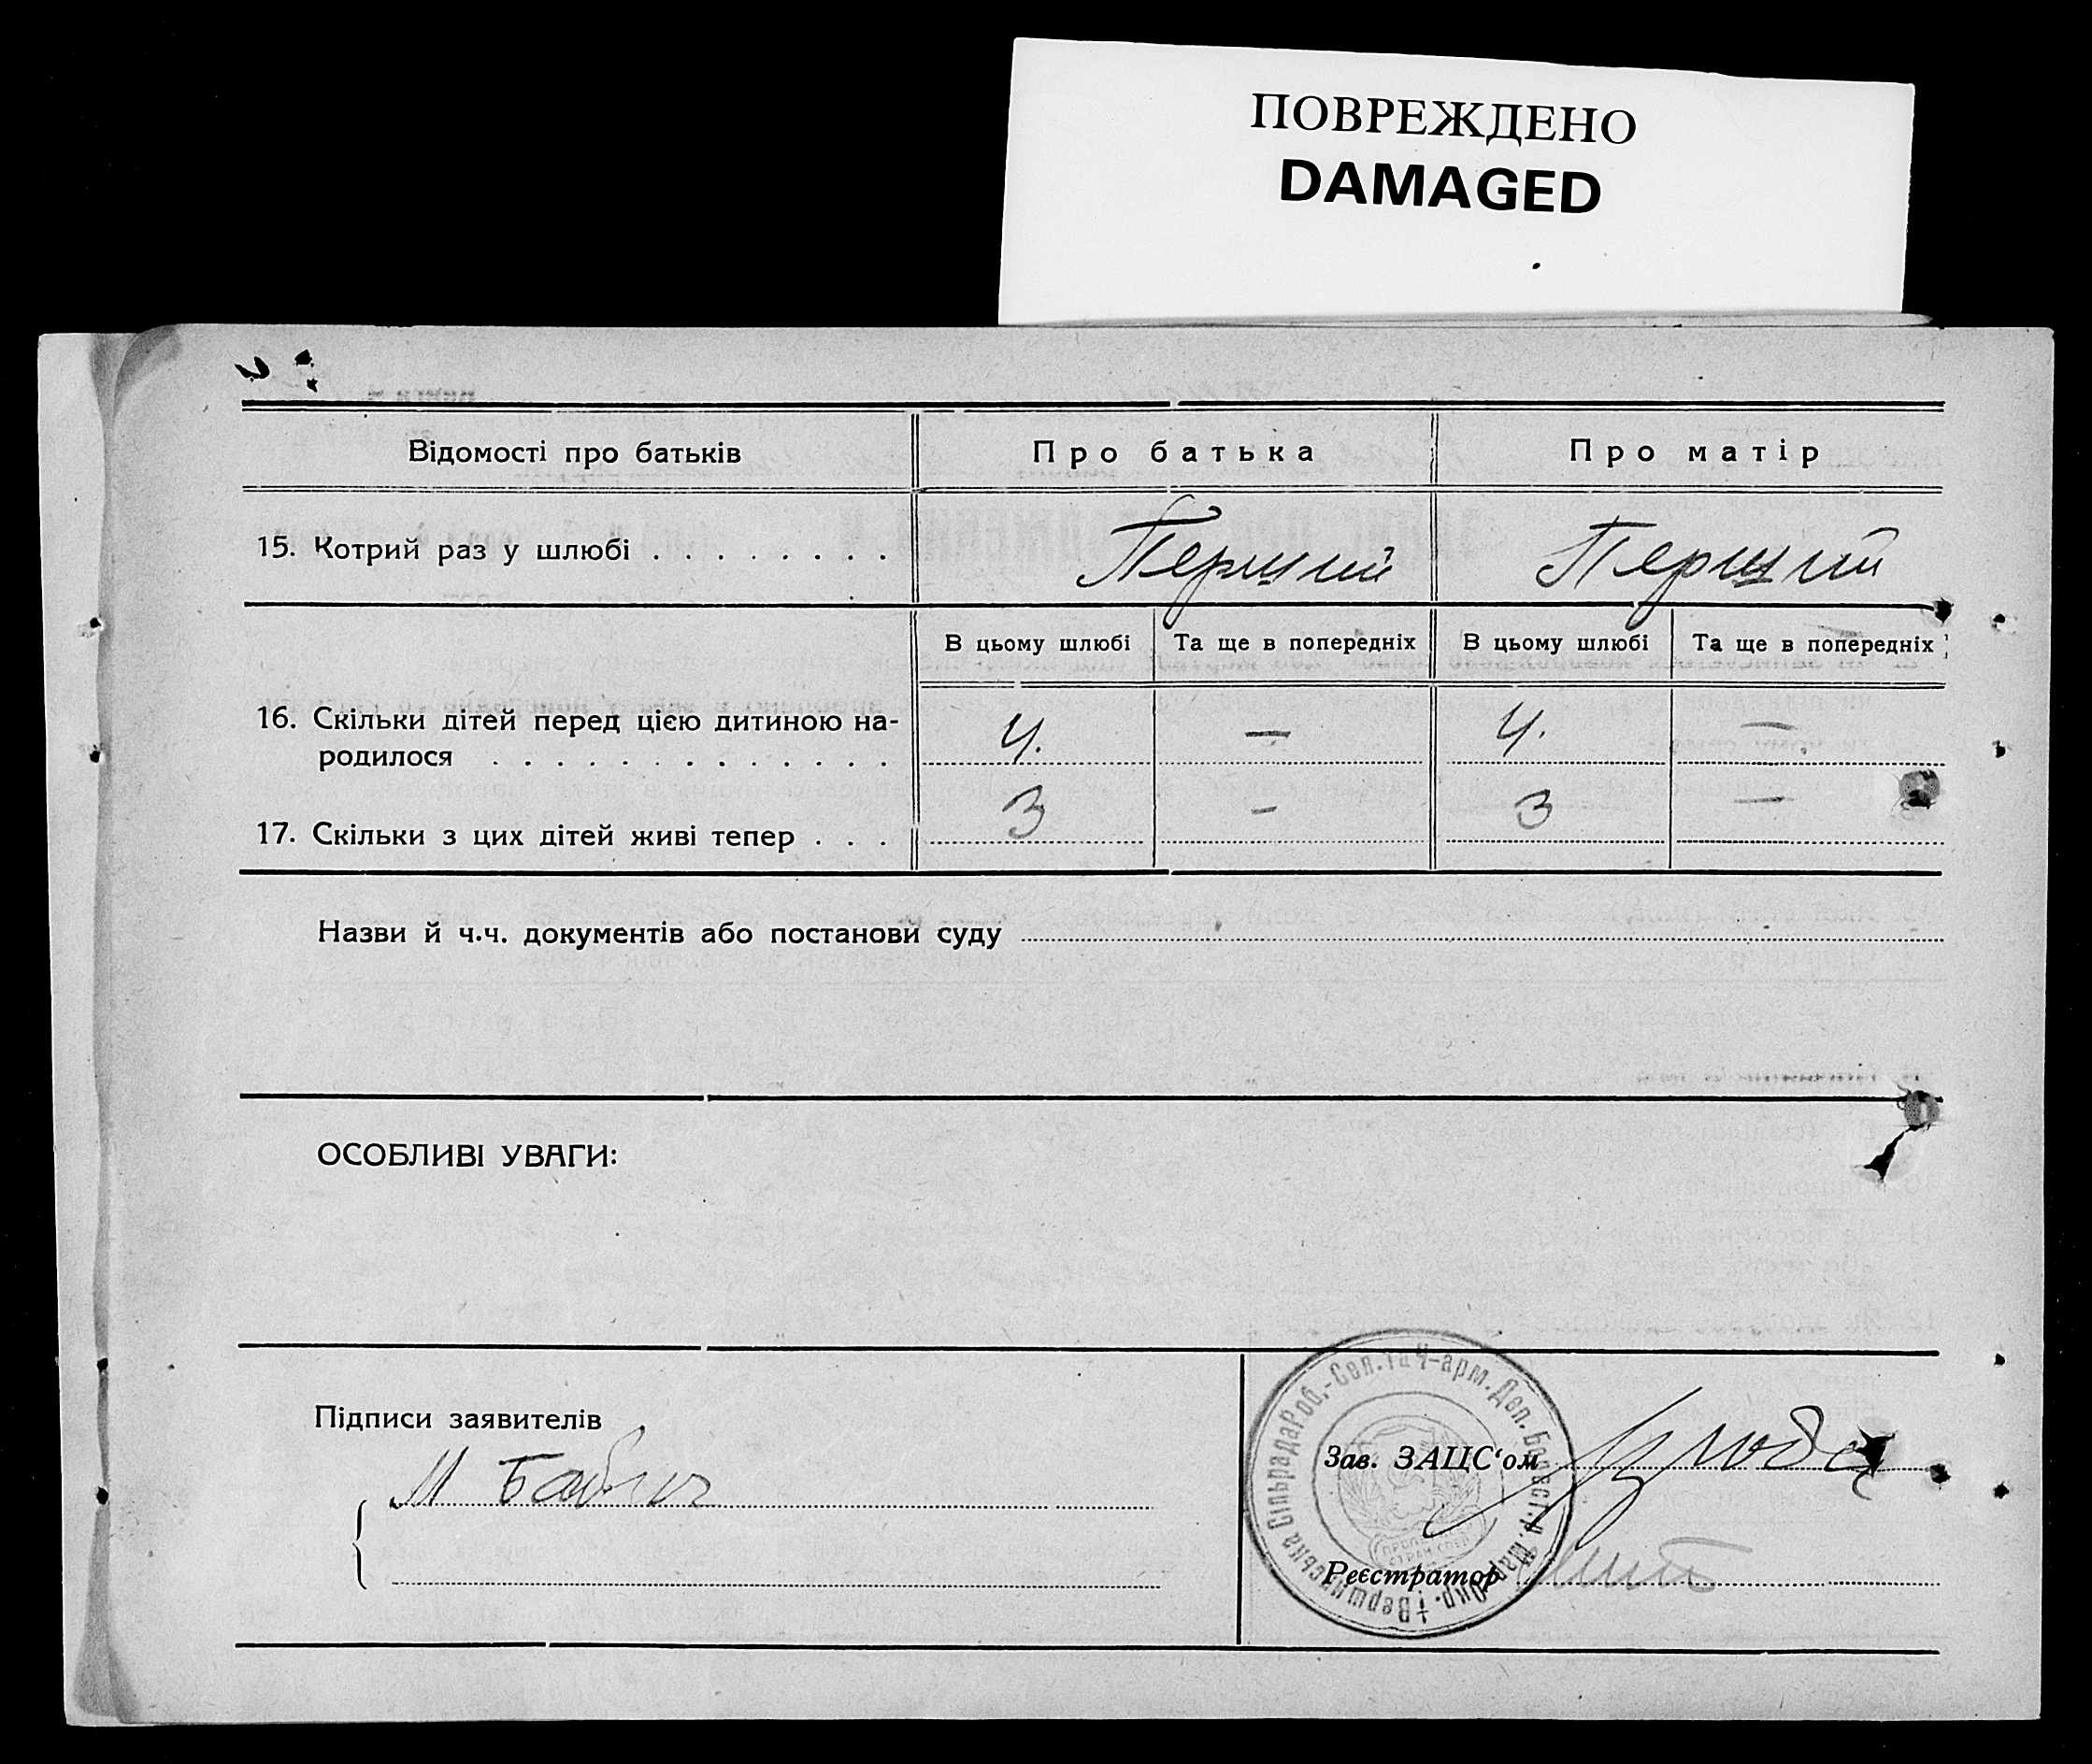 ПОВРЕЖДЕНО
DAMAGED
Відомості про батьків
Про батька
Про матір
15. Котрий раз у шлюбі . . . . . . . .
Перший
Перший
В цьому шлюбі
Та ще в попередніх
В цьому шлюбі
Та ще в попередніх
16. Скільки дітей перед цією дитиною на-
родилося . . . . . . . . . . . . . .
4.
—
4.
—
17. Скільки з цих дітей живі тепер . . .
3
-
3
—
Назви й ч.ч. документів або постанови суду
ОСОБЛИВІ УВАГИ:
Підписи заявителів
М Бабич
Зав. ЗАЦС‘ом
Реєстратор
Вершинська СільрадаРоб.-Сел. та Ч-арм. Деп.